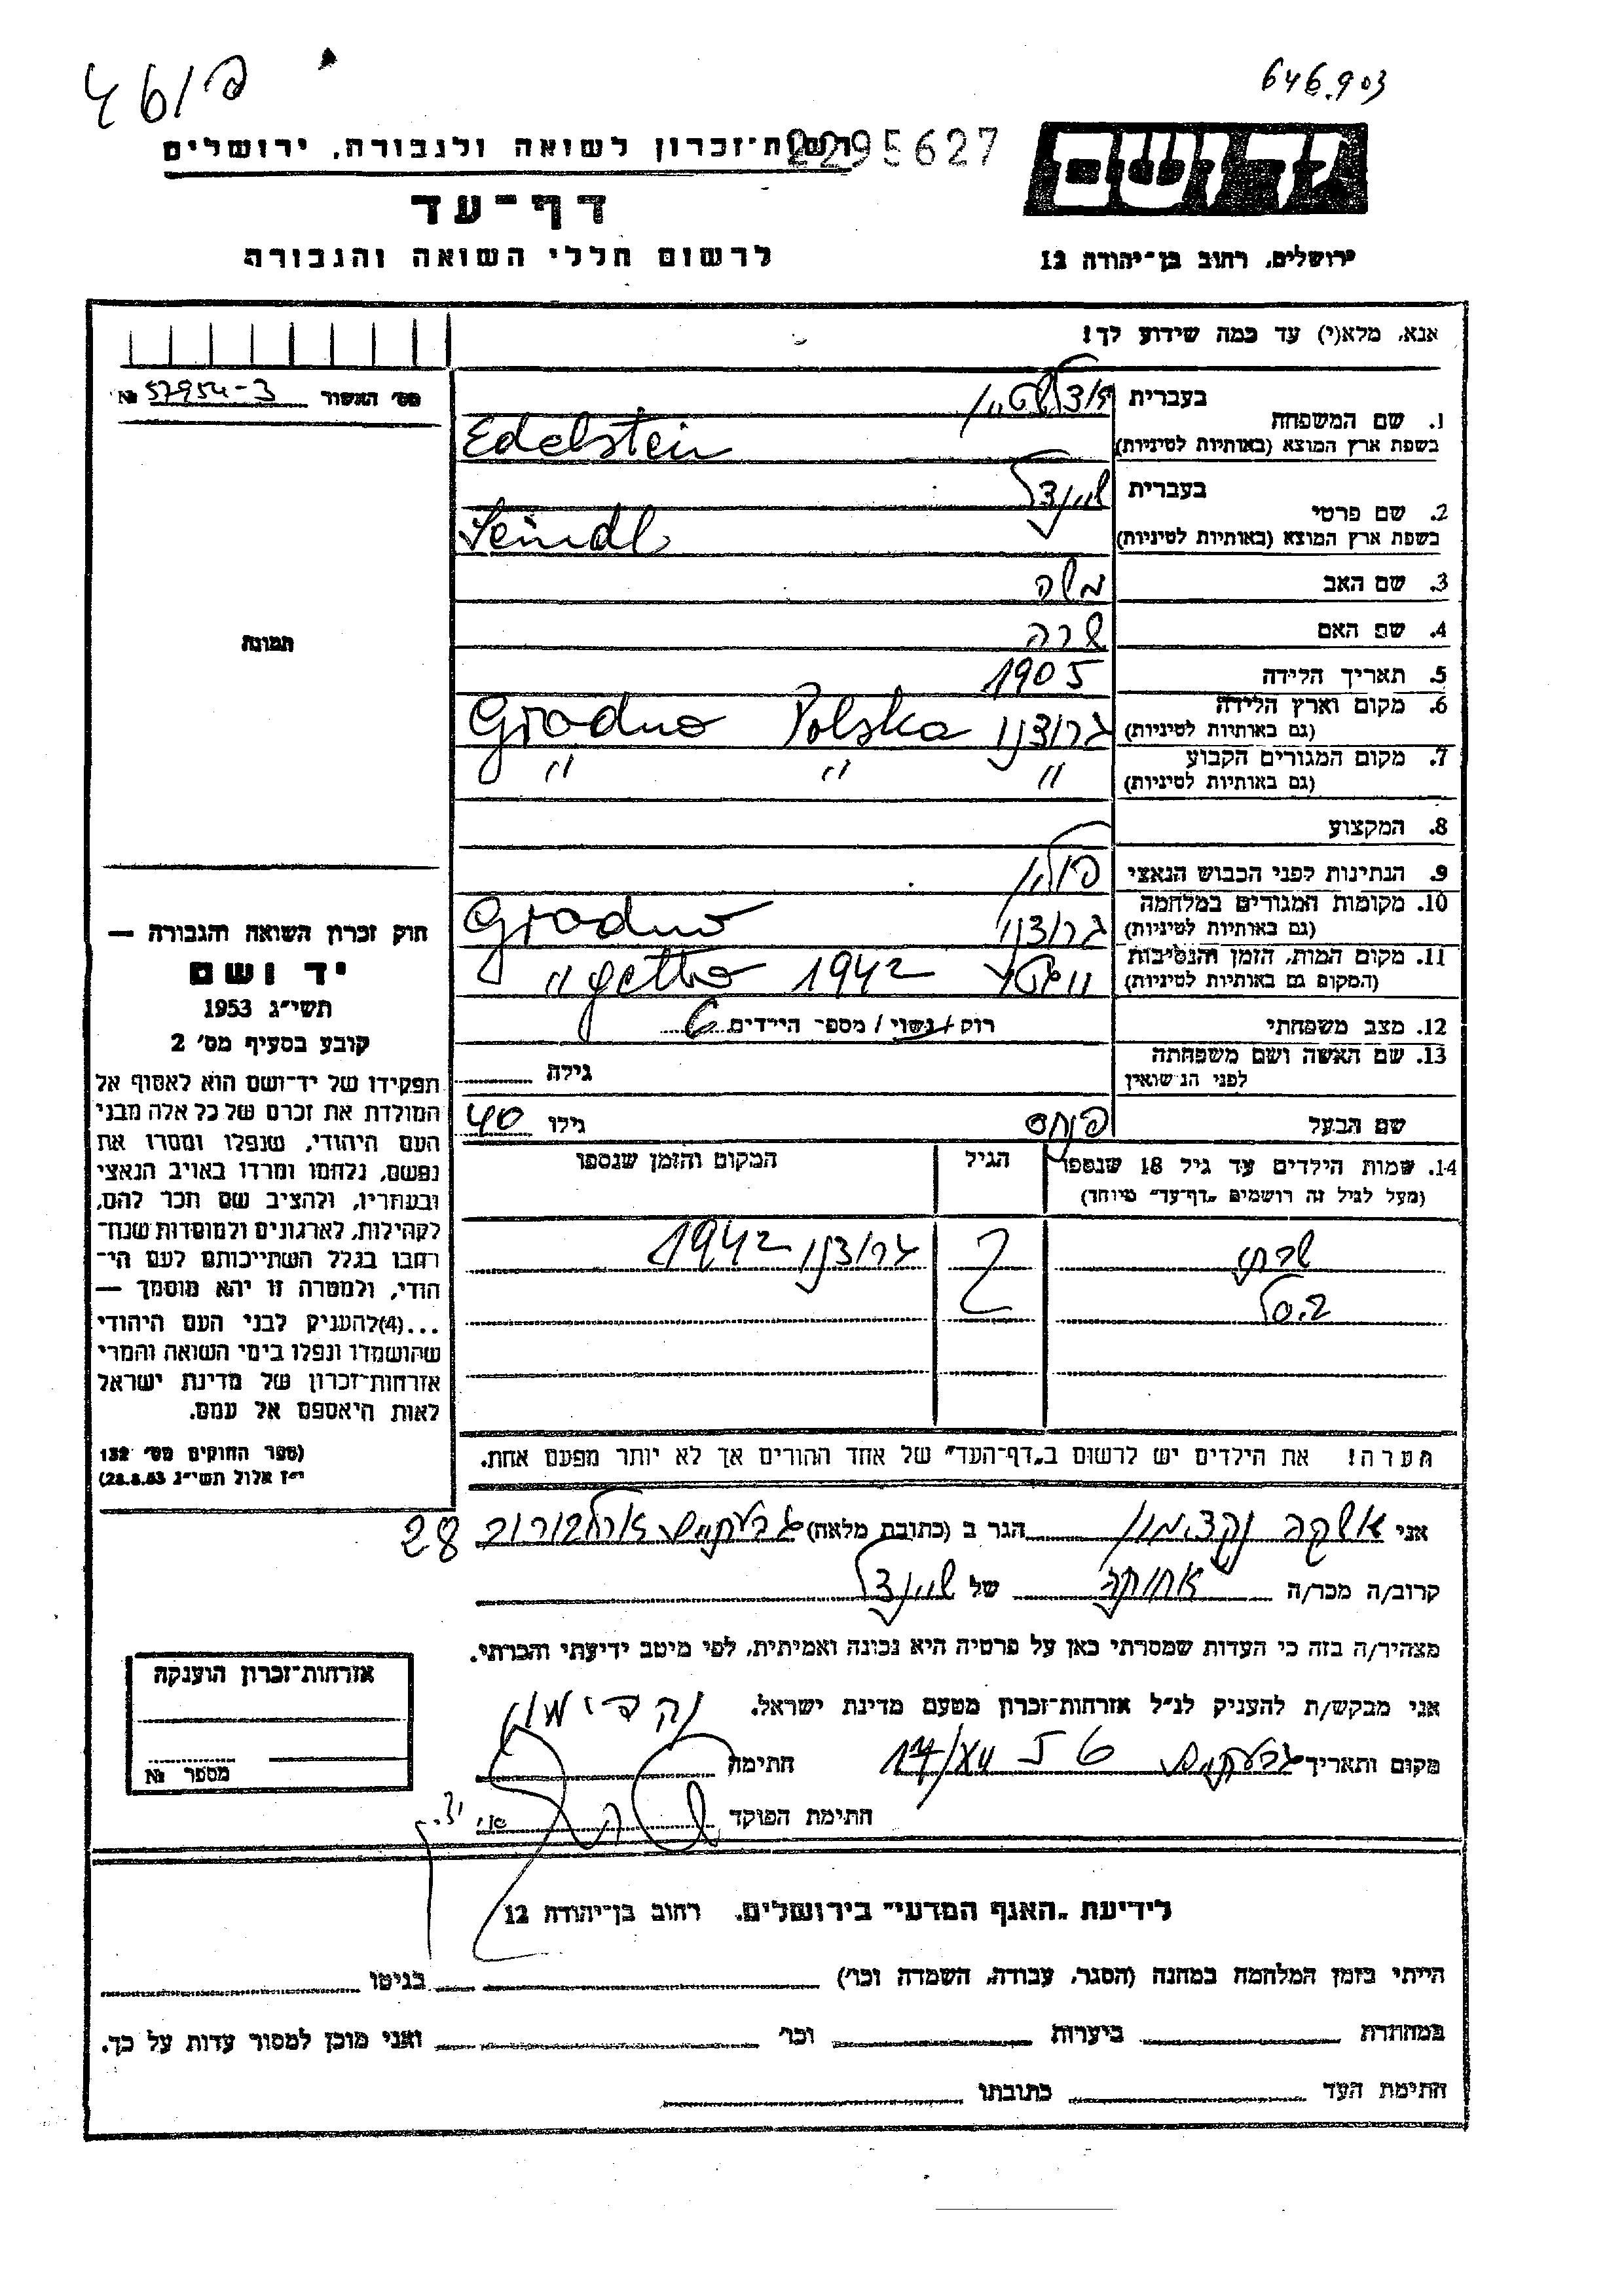 461פ
646.903
רשות־זכרון לשואה ולגבורה, ירושלים
2295627
דף־עד
לרשום חללי השואה והגבורה
ידושם
ירושלים, רחוב בן־יהודה 12
אנא, מלא(י) עד כמה שידוע לך!
מס׳ האשור № 57954-3
1. שם המשפחה
בעברית אדלשטיין
בשפת ארץ המוצא (באותיות לטיניות) Edelstein
2. שם פרטי
בעברית שיינדל
בשפת ארץ המוצא (באותיות לטיניות) Seindl
3. שם האב משה
4. שם האם שרה
תמונה
5. תאריך הלידה 1905
6. מקום וארץ הלידה גרודנו Grodno Polska
(גם באותיות לטיניות)
7. מקום המגורים הקבוע " " "
(גם באותיות לטיניות)
8. המקצוע
9. הנתינות לפני הכבוש הנאצי פולין
10. מקומות המגורים במלחמה גרודנו Grodno
(גם באותיות לטיניות)
11. מקום המות, הזמן והנסיבות 1942 getto "
(המקום גם באותיות לטיניות)
12. מצב משפחתי רוק/נשוי/מספר הילדים 6
13. שם האשה ושם משפחתה
לפני הנישואין
גילה
שם הבעל פנחס גילו 40
14. שמות הילדים עד גיל 18 שנספו
(מעל לגיל זה רושמים „דף־עד״ מיוחד)
הגיל
המקום והזמן שנספו
גרודנו 1942
הערה! את הילדים יש לרשום ב„דף־העד״ של אחד ההורים אך לא יותר מפעם אחת.
חוק זכרון השואה והגבורה —
יד ושם
תשי״ג 1953
קובע בסעיף מס׳ 2
תפקידו של יד־ושם הוא לאסוף אל
המולדת את זכרם של כל אלה מבני
העם היהודי, שנפלו ומסרו את
נפשם, נלחמו ומרדו באויב הנאצי
ובעוזריו, ולהציב שם וזכר להם,
לקהילות, לארגונים ולמוסדות שנח־
רבו בגלל השתייכותם לעם הי־
הודי, ולמטרה זו יהא מוסמך —
...(4)להעניק לבני העם היהודי
שהושמדו ונפלו בימי השואה והמרי
אזרחות־זכרון של מדינת ישראל
לאות היאספם אל עמם.
(ספר החוקים מס׳ 132
י״ז אלול תשי״ג 28.8.53)
אני הגר ב (כתובת מלאה) גבעתיים 28
קרוב/ה מכר/ה אחותה של שיינדל
מצהיר/ה בזה כי העדות שמסרתי כאן על פרטיה היא נכונה ואמיתית, לפי מיטב ידיעתי והכרתי.
אני מבקש/ת להעניק לנ״ל אזרחות־זכרון מטעם מדינת ישראל.
מקום ותאריך גבעתיים חתימה
חתימת הפוקד
אזרחות־זכרון הוענקה
מספר №
לידיעת „האגף המדעי״ בירושלים, רחוב בן־יהודה 12
הייתי בזמן המלחמה במחנה (הסגר, עבודה, השמדה וכו׳) בגיטו
במחתרת ביערות וכו׳ ואני מוכן למסור עדות על כך.
חתימת העד כתובתו